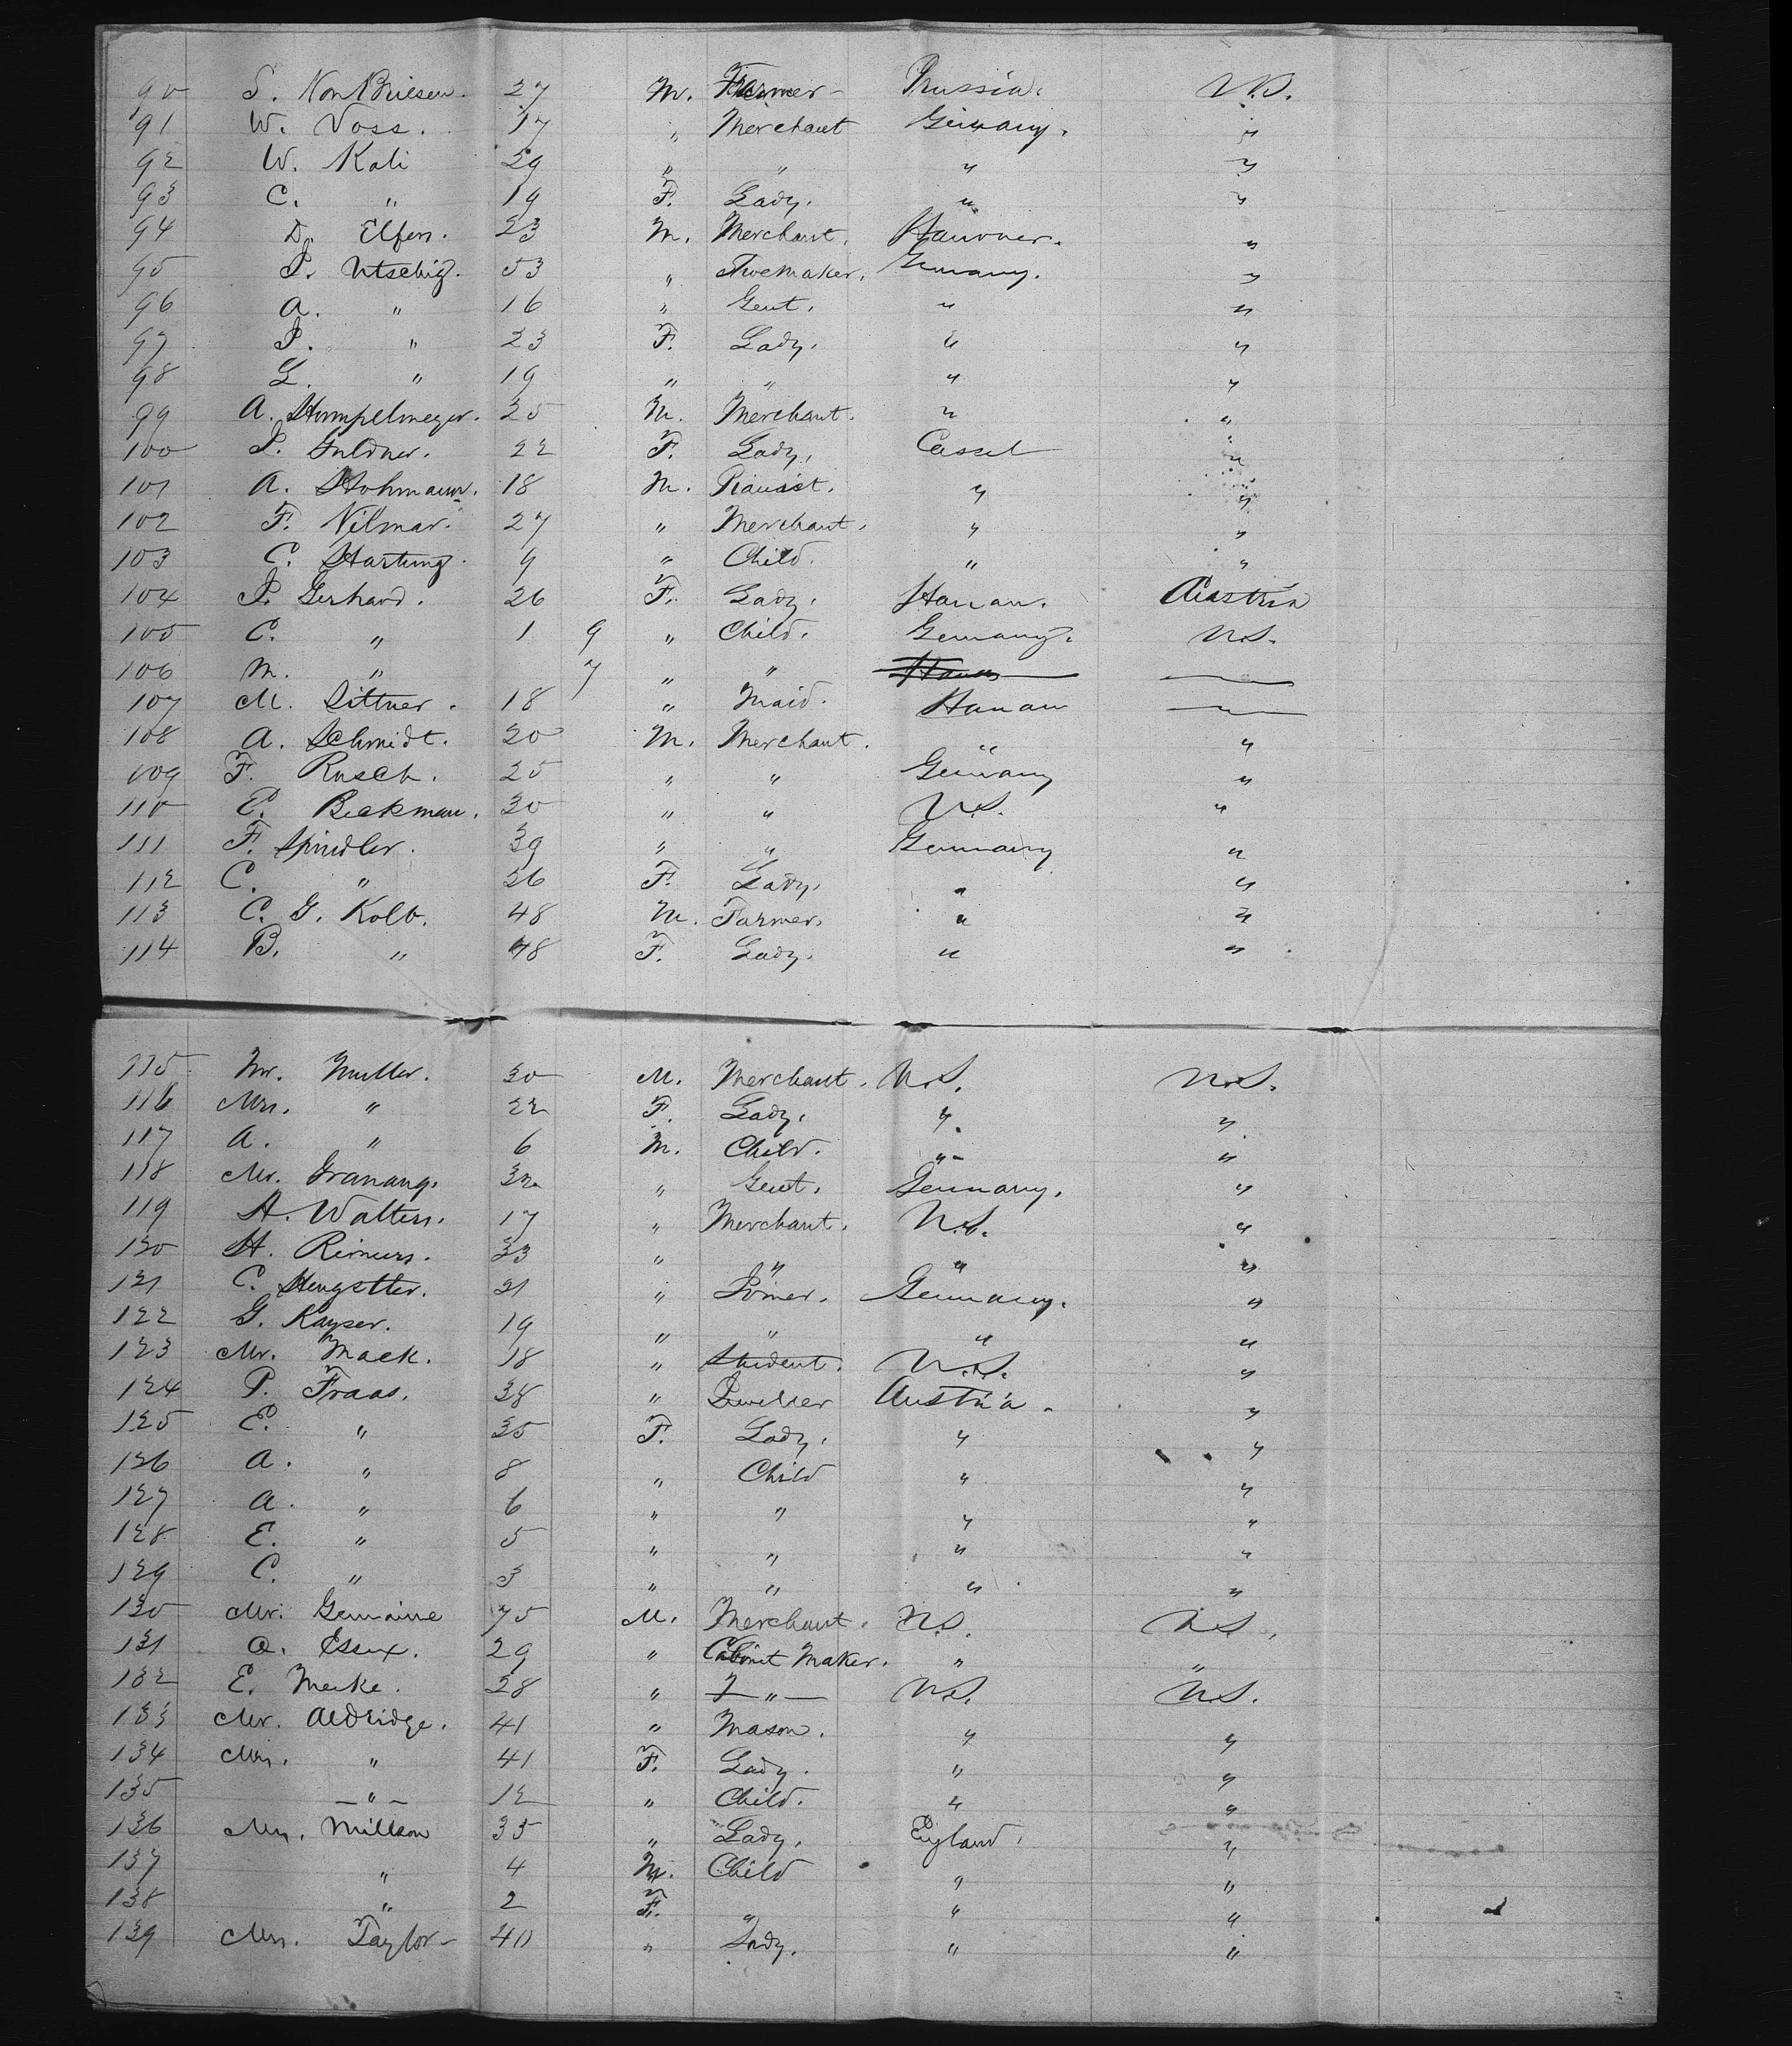 90 S. Von Briesen. 27 M. Farmer - Prussia. U.S.
91 W. Voss. 17 " Merchant Germany. "
92 W. Kali 29 " " " "
93 C. " 19 F. Lady. " "
94 D. Elfers. 23 M. Merchant. Hanover. "
95 P. Utschig. 53 " Germany. "
96 A. " 16 " Gent. " "
97 P. " 23 F. Lady. " "
98 G. " 19 " " " "
99 A. Stumpelmeyer. 25 M. Merchant. " "
100 P. Guldner. 22 F. Lady. Cassel "
101 A. Hohmann. 18 M. Pianist. " "
102 F. Vilmar. 27 " Merchant. " "
103 C. Hartung. 9 " Child. " "
104 P. Gerhard. 26 F. Lady. Hanau. Austria
105 C. " 1 9 " Child. Germany. U.S.
106 M. " 7 " " Hanau
107 M. Sittner. 18 " Maid. Hanau
108 A. Schmidt. 20 M. Merchant. " "
109 F. Rusch. 25 " " Germany "
110 E. Beckman. 30 " " U.S. "
111 F. Spindler. 39 " " Germany "
112 C. " 26 F. Lady. " "
113 C. G. Kolb. 48 M. Farmer. " "
114 B. " 48 F. Lady. " "
115 Mr. Muller. 30 M. Merchant. U.S. U.S.
116 Mrs. " 22 F. Lady. " "
117 A. " 6 M. Child. " "
118 Mr. " Gent. Germany. "
119 H. Walters. 17 " Merchant. U.S. "
120 H. Reimers. 33 " " " "
121 C. Hengstler. 21 " Germany. "
122 G. Kayser. 19 " " " "
123 Mr. Mack. 18 " Student. U.S. "
124 P. Fraas. 38 " Jeweller Austria. "
125 E. " 35 F. Lady. " "
126 A. " 8 " Child " "
127 A. " 6 " " " "
128 E. " 5 " " " "
129 C. " 3 " " " "
130 Mr. Germaine 75 M. Merchant. U.S. U.S.
131 O. Essex. 29 " Cabinet Maker. " "
132 E. Merke. 28 " " U.S. U.S.
133 Mr. Aldridge. 41 " Mason. " "
134 Mrs. " 41 F. Lady. " "
135 - " - 12 " Child. " "
136 Mrs. Millson 35 " Lady. England. "
137 " 4 M. Child " "
138 " 2 F. " " "
139 Mrs. Taylor - 40 " Lady. " "